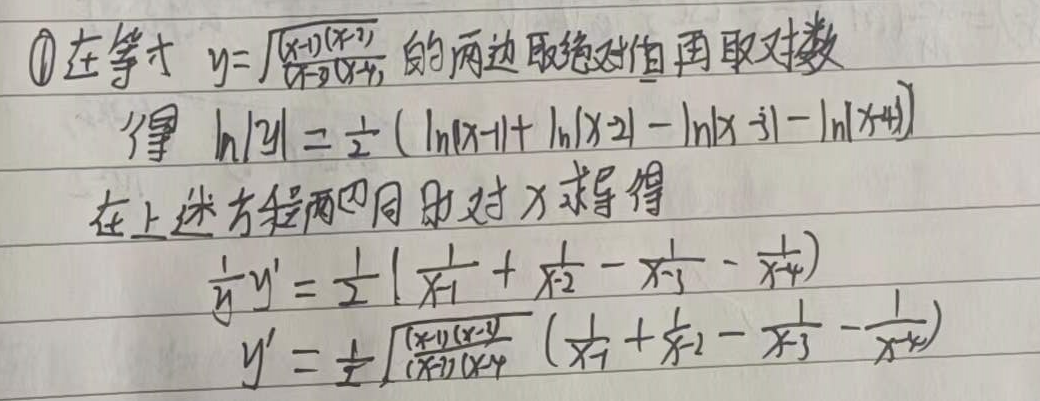 ①在等式 y=√((x-1)(x-2)/(x-3)(x-4)) 的两边取绝对值再取对数
得 ln|y| = 1/2 ( ln|x-1| + ln|x-2| - ln|x-3| - ln|x-4|)
在上述方程两边同时对x求导得
1/y y' = 1/2 ( 1/(x-1) + 1/(x-2) - 1/(x-3) - 1/(x-4) )
y' = 1/2 √((x-1)(x-2)/(x-3)(x-4)) ( 1/(x-1) + 1/(x-2) - 1/(x-3) - 1/(x-4) )